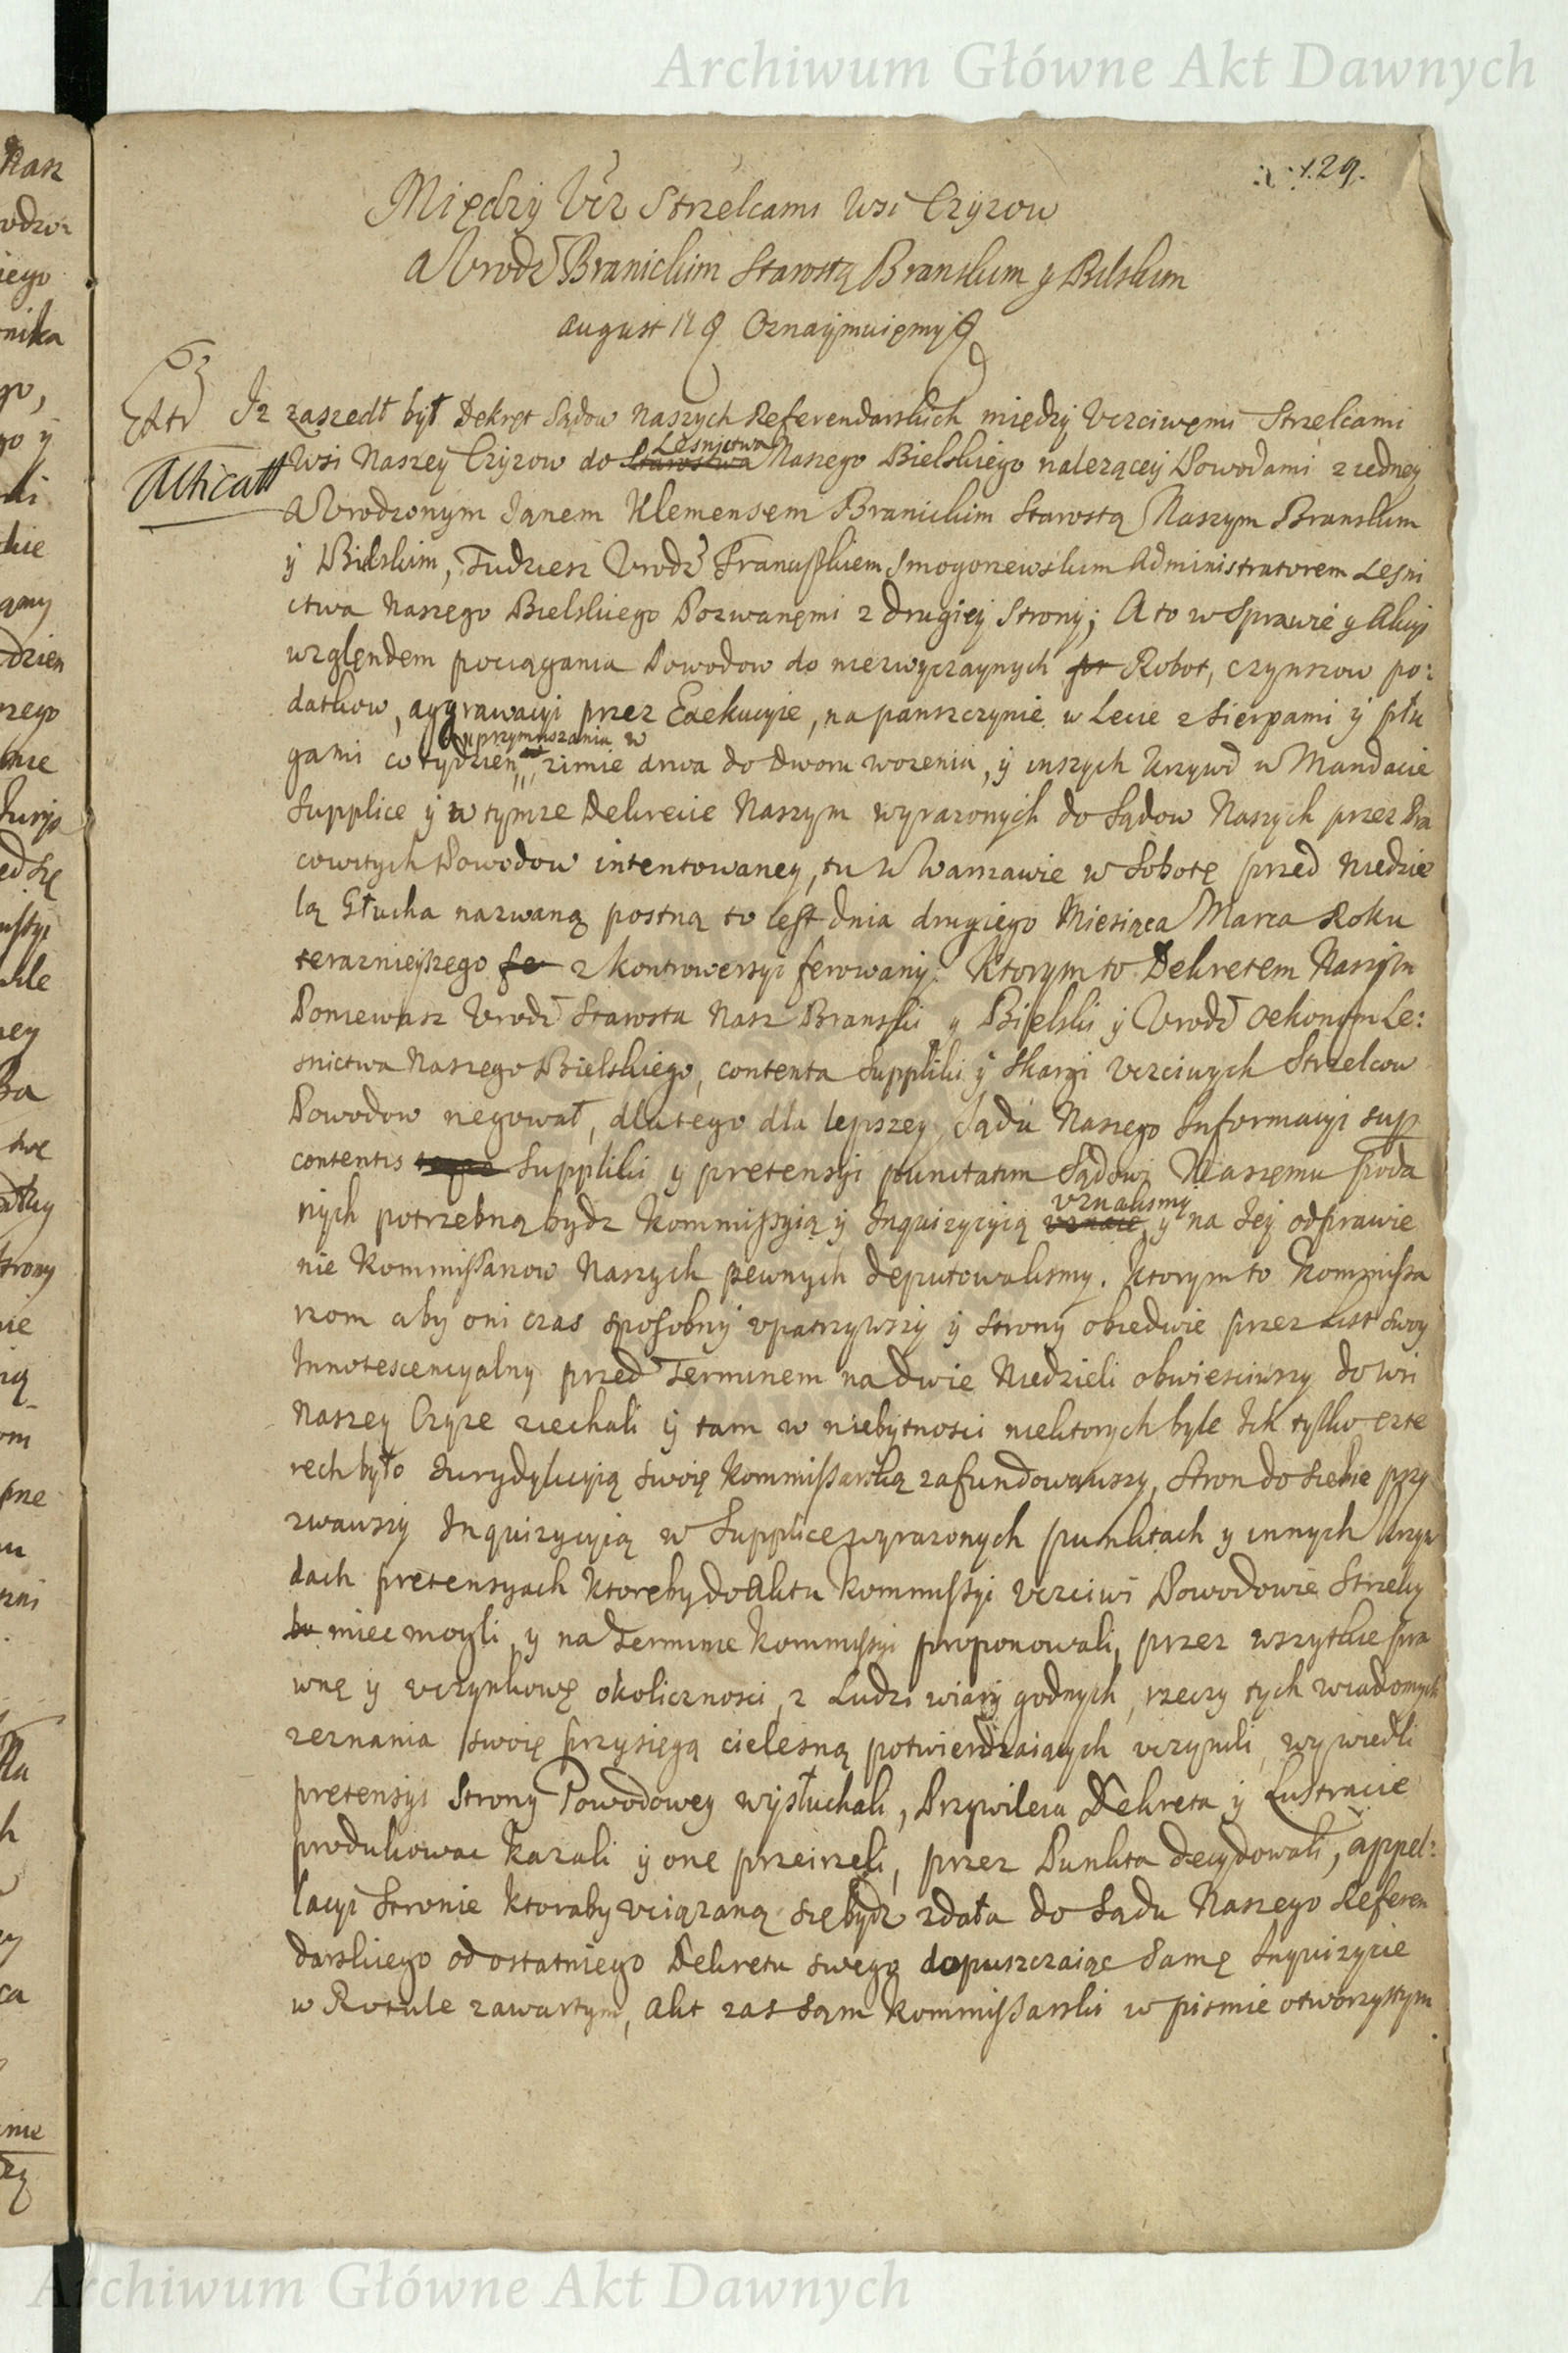 Archiwum Główne Akt Dawnych
129.
Między Ucz Strzelcami Wsi Czyzow
a Urodź Branickim Starostą Branskim y Bilskim
august II Oznaymuięmy
Extr
Iz zaszedł był Dekręt Sądow Naszych Referendarskich między Uczciwęmi Strzelcami
Leśnictwa
Wsi Naszey Czyzow do Starostwa Naszego Bielskiego nalezącey Powodami z iedney
a Urodzonym Janem Klemensem Branickim Starostą Naszym Branskim
ÿ Bielskim, Tudziesz Urodź Franciszkiem Smogorzewskim Administratorem Leśni
ctwa Naszęgo Bielskiego Pozwanęmi z drugiey Strony; A to w Sprawie y Akcyi
względem pociągania Powodow do niezwyczaynych Robot, czynszow po:
datkow, aggrawacyi przez Exekucyie, na panszczyznie w Lecie z Sierpami ÿ płu
przymuszania w
gami co tydzien zimie drwa do Dworu wozeniu, ÿ inszych krzywd w Mandacie
Supplice ÿ w tymze Dekrecie Naszym wyrazonych do Sądow Naszych przez Pra
cowitych Powodow intentowaney, tu w Warszawie w Sobotę przed Niedzie
lą Głucha nazwaną postną to iest dnia drugiego Miesiąca Marca Roku
terazniejszego fe z kontrowersyi ferowany. Ktorym to Dekretem Naszym
Poniewasz Urodź Starosta Nasz Branski y Bielski ÿ Urodź Oekonom Le:
snictwa Naszego Bielskiego, contenta Suppliki ÿ Skargi Uczciwych Strzelcow
Powodow negował, dlatego dla lepszey Sądu Naszego Informacyi sup
contentis Suppliki y pretensyi punctatim Sądowi Naszęmu poda
uznalismy
nych potrzebną bydz Kommissyią ÿ Inquizycyią uznaie, y na Jey odprawie
nie Kommissarzow Naszych pewnych deputowalismy. Ktorym to Kommissa
rzom aby oni czas sposobny upatrzywszy ÿ Strony obiedwie przez List swoy
Innotescencyalny przed Terminem na dwie Niedzieli obwiesciwszy do Wsi
Naszey Czyze ziechali ÿ tam w niebytnosci niektorych byle Ich tylko czte
rech było Jurydykcyią swoię Kommissarską zafundowawszy, Stron do siebie przy
zwawszy Inquizycyią w Supplice wyrazonych punktach y innych krzyw
dach pretensyach ktoręby do Aktu Kommissyi Uczciwi Powodowie Strzelcy
bo miec mogli, y na Terminie Kommissyi proponowali, przez wszytkie pra
wnę ÿ uczynkowę okolicznosci, z Ludzi wiary godnych, rzeczy tych wiadomych
zeznania swoię przysięgą cielesną potwierdzaiących uczynili, wywiedli
pretensyi Strony Powodowey wysłuchali, Przywileia Dekreta ÿ Lustracie
produkowac kazali ÿ onę przeirzeli, przez Punkta decydowali, appel:
lacyi Stronie ktoraby uciązaną się bydz zdała do Sądu Naszego Referen
darskiego od ostatniego Dekretu swego dopuszczaiąc Samę Inquizycie
w Rotule zawartym, akt zas Sąm Kommissarski w pismie otworzystym
Archiwum Główne Akt Dawnych